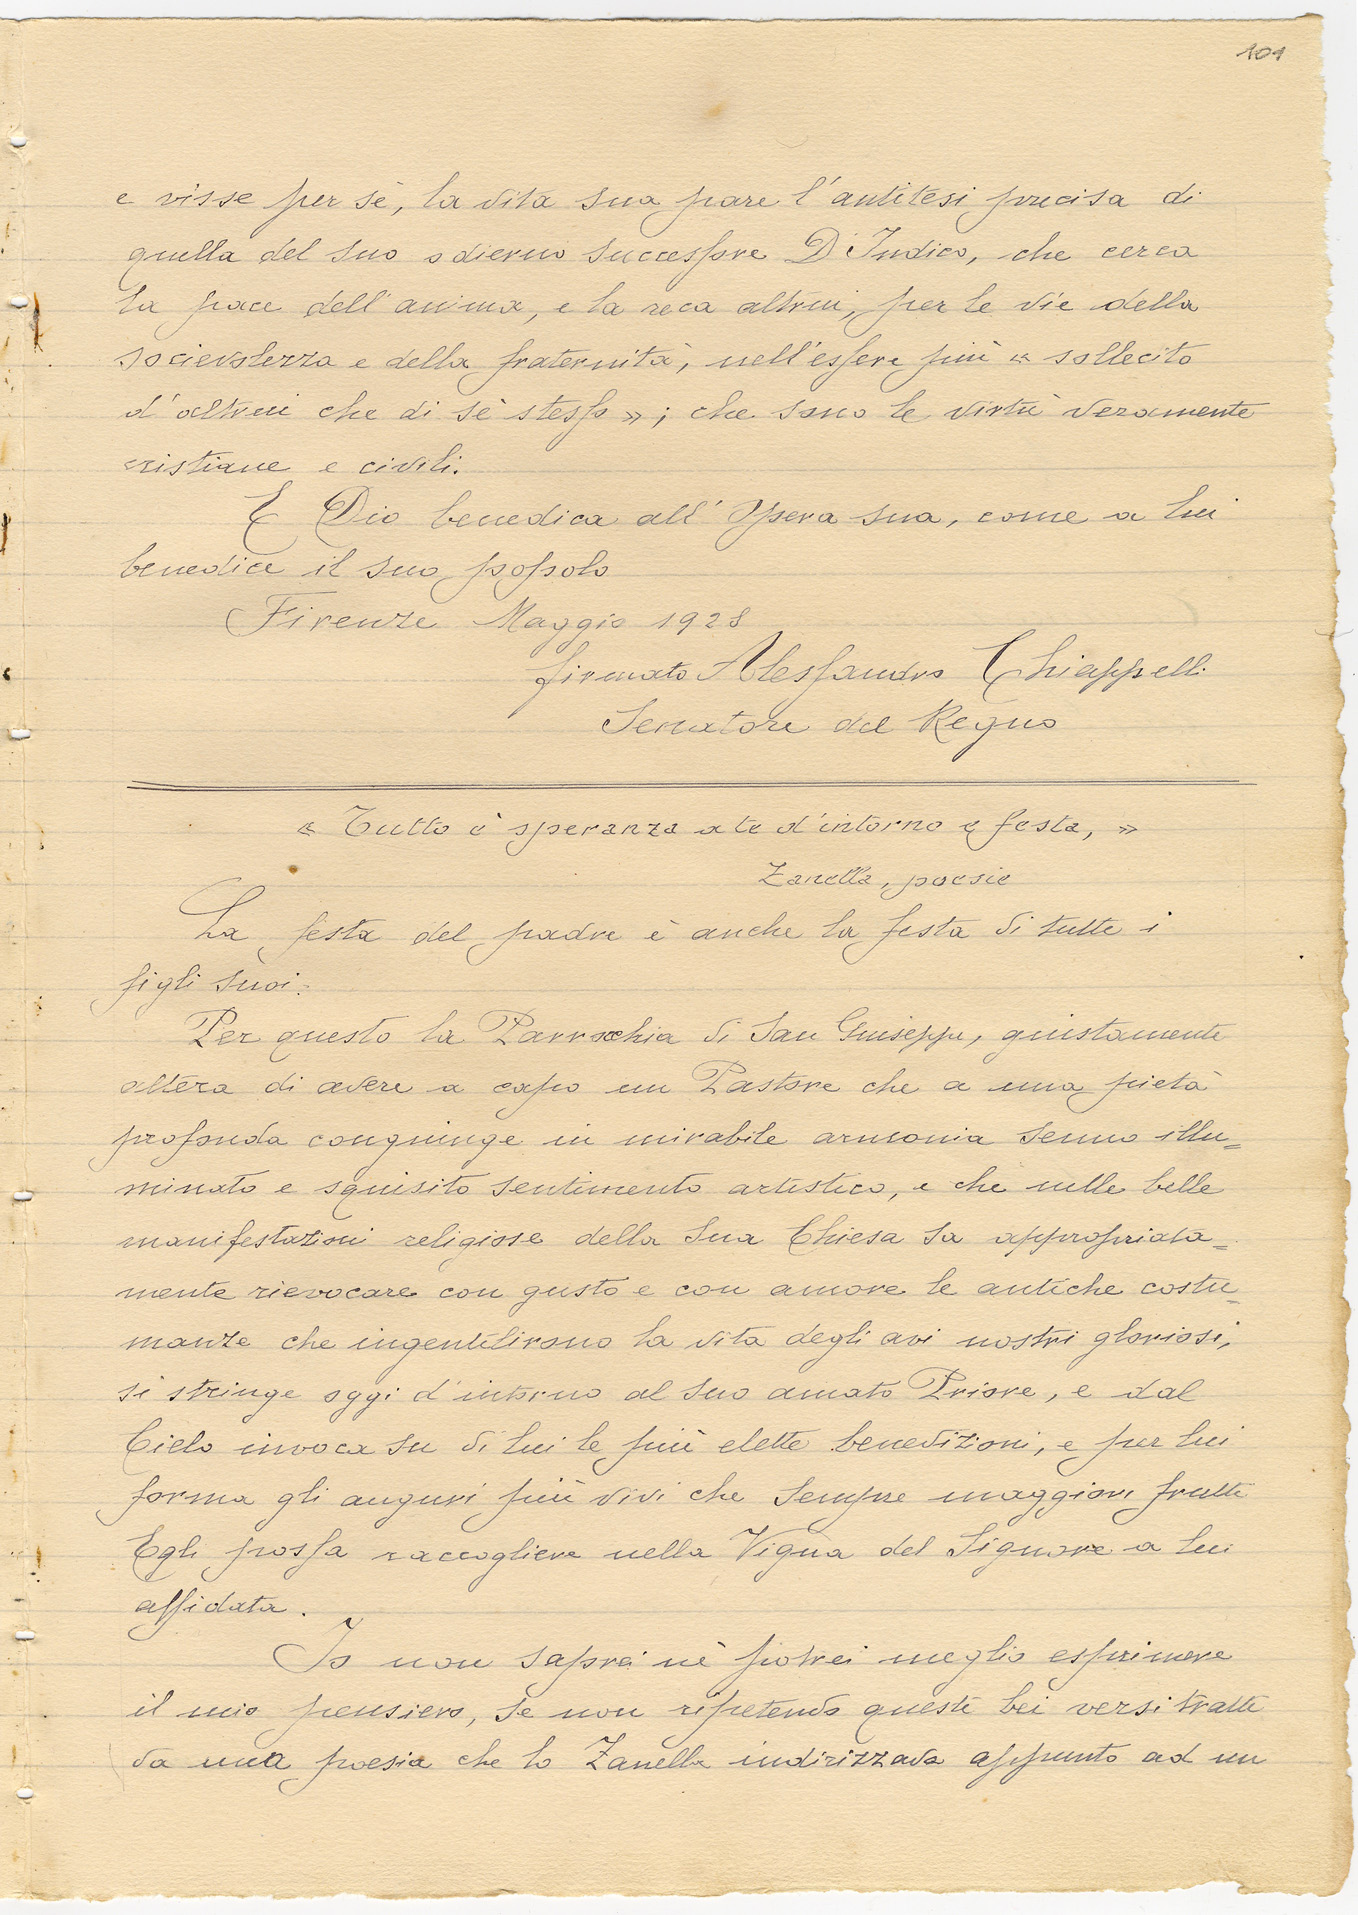 101
e visse per sè, la vita sua pare l'antitesi precisa di
quella del suo odierno successore D'Indico, che cerca
la pace dell'anima, e la reca altrui, per le vie della
socievolezza e della fraternità, nell'essere più « sollecito
d'altrui che di sè stesso »; che sono le virtù veramente
cristiane e civili.
E Dio benedica all'Opera sua, come a lui
benedice il suo popolo
Firenze Maggio 1928
firmato Alessandro Chiappelli
Senatore del Regno
« Tutto è speranza a te d'intorno e festa, »
Zanella, poesie
La festa del padre è anche la festa di tutti i
figli suoi.
Per questo la Parrochia di San Giuseppe, giustamente
altera di avere a capo un Pastore che a una pietà
profonda congiunge in mirabile armonia senno illu=
minato e squisito sentimento artistico, e che nelle belle
manifestazioni religiose della sua Chiesa sa appropriata=
mente rievocare con gusto e con amore le antiche costu=
manze che ingentilirono la vita degli avi nostri gloriosi,
si stringe oggi d'intorno al suo amato Priore, e dal
Cielo invoca su di lui le più elette benedizioni, e per lui
forma gli auguri più vivi che sempre maggiori frutti
Egli possa raccogliere nella Vigna del Signore a lui
affidata.
Io non saprei nè potrei meglio esprimere
il mio pensiero, se non ripetendo questi bei versi tratti
da una poesia che lo Zanella indirizzava appunto ad un